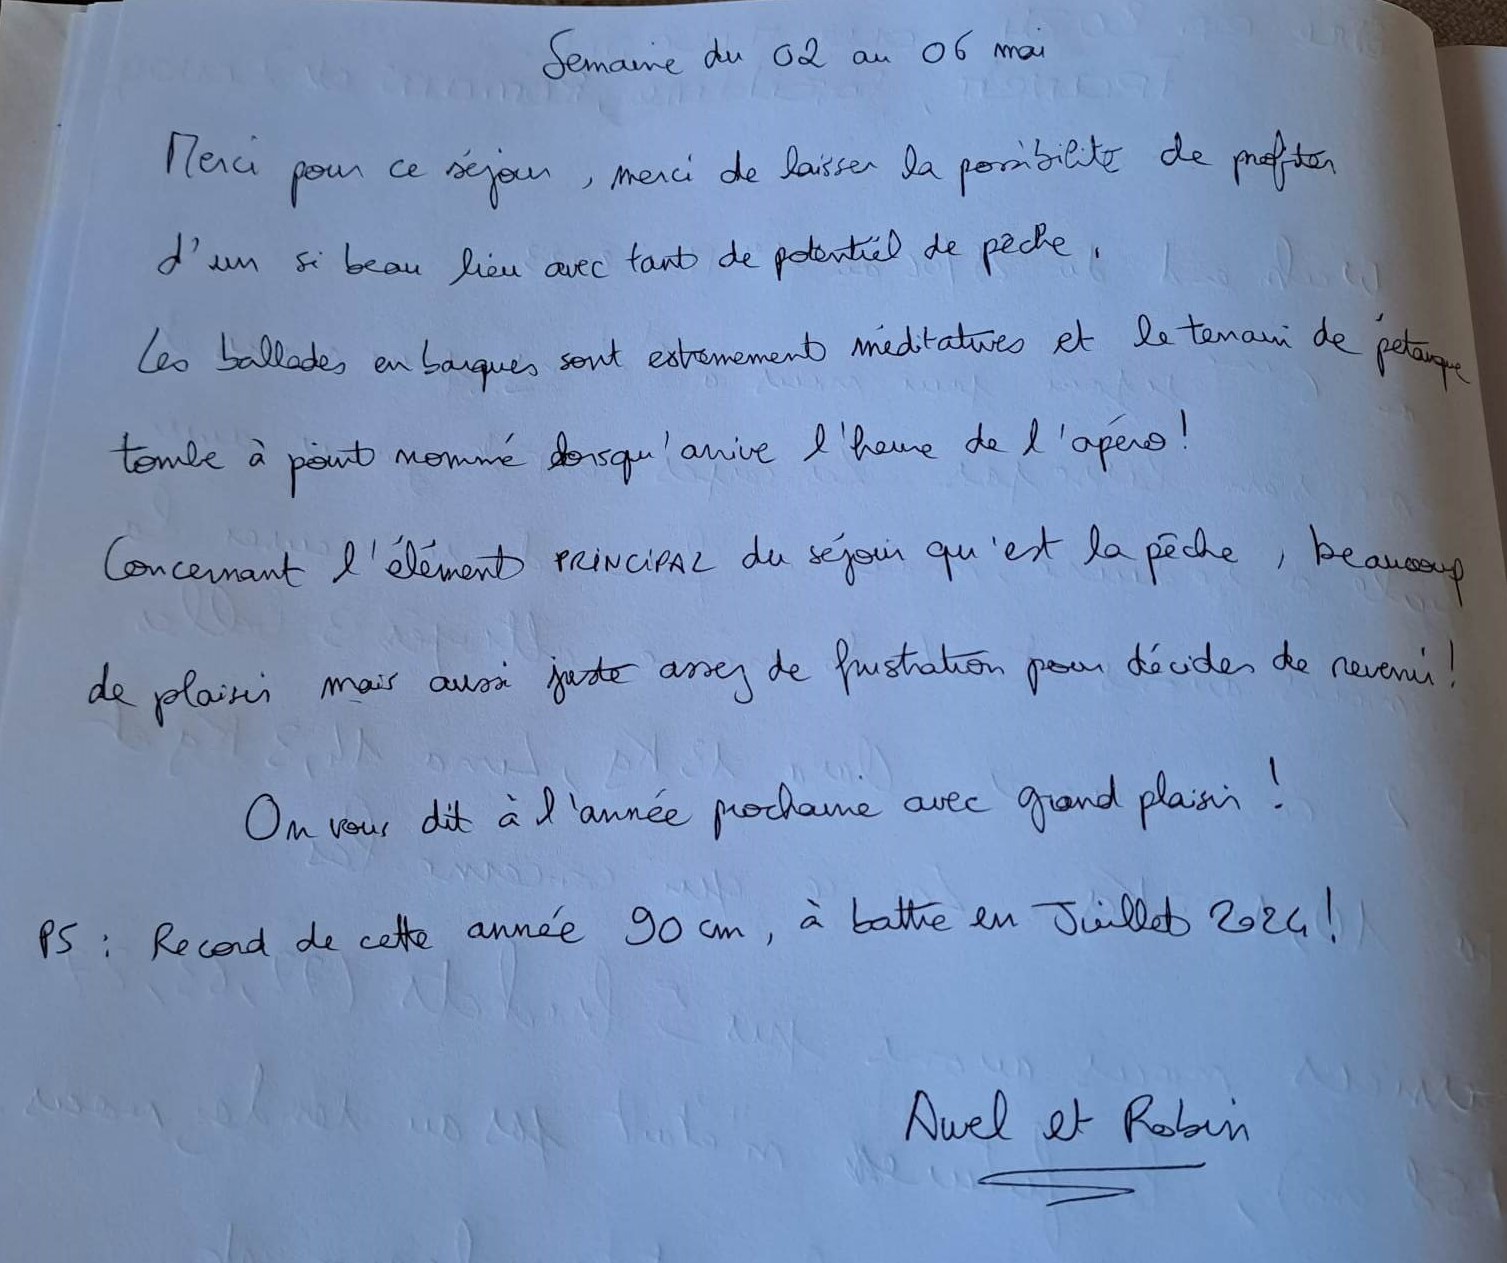 Semaine du 02 au 06 mai
Merci pour ce séjour, merci de laisser la possibilité de profiter
d'un si beau lieu avec tant de potentiel de pêche.
Les ballades en barques sont extrêmement méditatives et le terrain de pétanque
tombe à point nommé lorsqu'arrive l'heure de l'apéro!
Concernant l'élément PRINCIPAL du séjour qu'est la pêche, beaucoup
de plaisir mais aussi juste assez de frustration pour décider de revenir!
On vous dit à l'année prochaine avec grand plaisir!
PS : Record de cette année 90 cm, à battre en Juillet 2024!
Awel et Robin